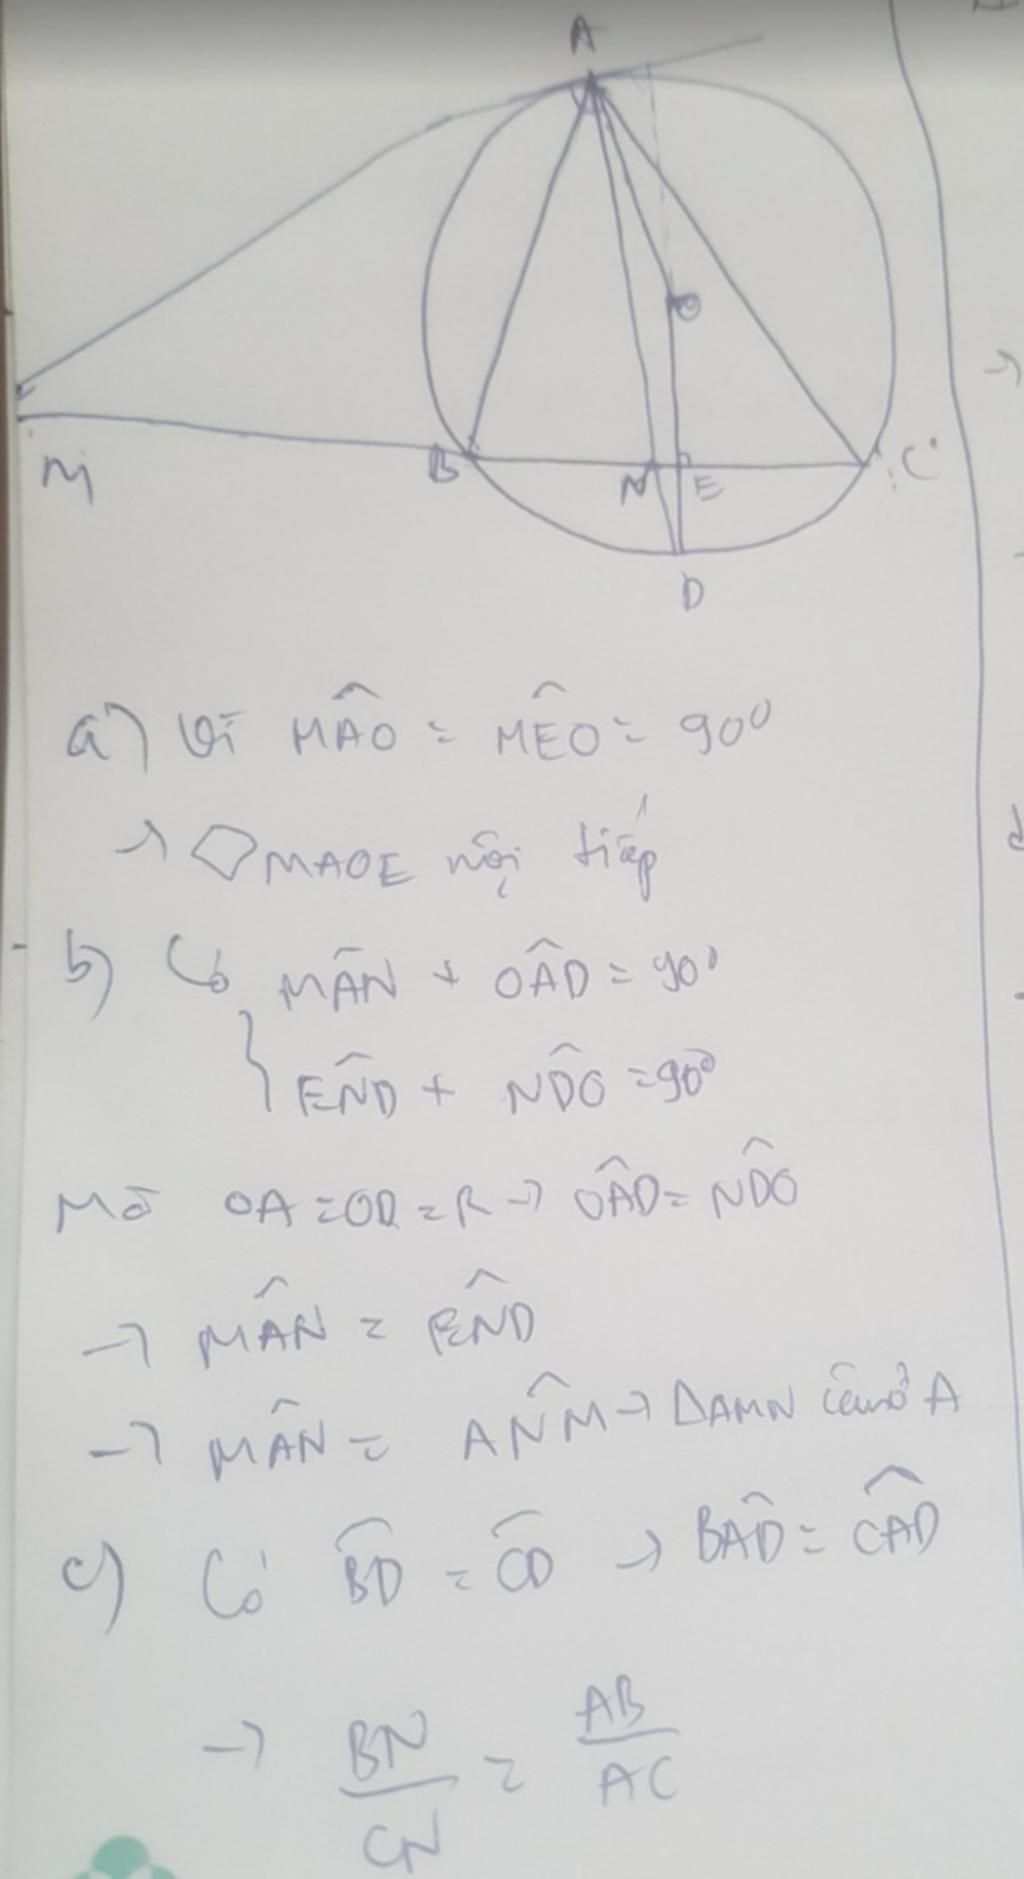 A
O
M
B
N
E
C
D
a) Vì MÂO = MÊO = 90⁰
→ ◇MAOE nội tiếp
b) Có MÂN + OÂD = 90⁰
END̂ + ND̂O = 90⁰
Mà OA = OD = R → OÂD = ND̂O
→ MÂN = EN̂D
→ MÂN = AN̂M → ΔAMN cân ở A
c) Có B͡D = C͡D → BÂD = CÂD
→ BN/CN = AB/AC